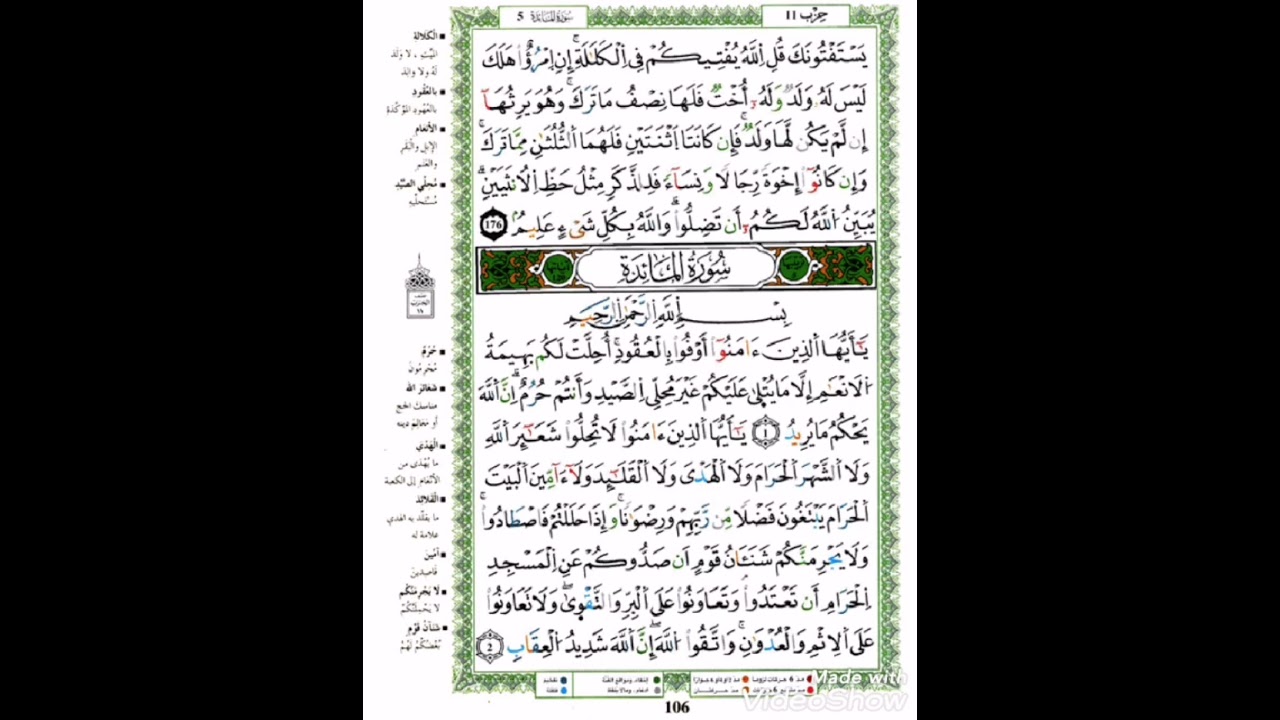 حِزْب 11
سُورَةُ المَائِدَة 5
يَسْتَفْتُونَكَ قُلِ اِ۬للَّهُ يُفْتِيكُمْ فِي اِ۬لْكَلَٰلَةِۖ إِنِ اِ۪مْرُؤٌاْ هَلَكَ
لَيْسَ لَهُۥ وَلَدٞ وَلَهُۥٓ أُخْتٞ فَلَهَا نِصْفُ مَا تَرَكَۖ وَهُوَ يَرِثُهَآ
إِن لَّمْ يَكُن لَّهَا وَلَدٞۖ فَإِن كَانَتَا اَ۪ثْنَتَيْنِ فَلَهُمَا اَ۬لثُّلُثَٰنِ مِمَّا تَرَكَۖ
وَإِن كَانُوٓاْ إِخْوَةٗ رِّجَالٗا وَنِسَآءٗ فَلِلذَّكَرِ مِثْلُ حَظِّ اِ۬لُانثَيَيْنِۖ
يُبَيِّنُ اُ۬للَّهُ لَكُمُۥٓ أَن تَضِلُّواْۖ وَاللَّهُ بِكُلِّ شَےْءٍ عَلِيمٞ 176
سُورَةُ المَائِدَة
بِسْمِ اِ۬للَّهِ اِ۬لرَّحْمَٰنِ اِ۬لرَّحِيمِ
يَٰٓأَيُّهَا اَ۬لذِينَ ءَامَنُوٓاْ أَوْفُواْ بِالْعُقُودِۖ أُحِلَّتْ لَكُم بَهِيمَةُ
اُ۬لَانْعَٰمِ إِلَّا مَا يُتْلَىٰ عَلَيْكُمْ غَيْرَ مُحِلِّي اِ۬لصَّيْدِ وَأَنتُمْ حُرُمٌۖ اِنَّ اَ۬للَّهَ
يَحْكُمُ مَا يُرِيدُ 1 يَٰٓأَيُّهَا اَ۬لذِينَ ءَامَنُواْ لَا تُحِلُّواْ شَعَٰٓئِرَ اَ۬للَّهِ
وَلَا اَ۬لشَّهْرَ اَ۬لْحَرَامَ وَلَا اَ۬لْهَدْيَ وَلَا اَ۬لْقَلَٰٓئِدَ وَلَآ ءَآمِّينَ اَ۬لْبَيْتَ
اَ۬لْحَرَامَ يَبْتَغُونَ فَضْلٗا مِّن رَّبِّهِمْ وَرِضْوَٰنٗاۖ وَإِذَا حَلَلْتُمْ فَاصْطَادُواْۖ
وَلَا يَجْرِمَنَّكُمْ شَنَـَٔانُ قَوْمٍ اَن صَدُّوكُمْ عَنِ اِ۬لْمَسْجِدِ
اِ۬لْحَرَامِ أَن تَعْتَدُواْۘ وَتَعَاوَنُواْ عَلَى اَ۬لْبِرِّ وَالتَّقْوَىٰۖ وَلَا تَعَاوَنُواْ
عَلَى اَ۬لِاثْمِ وَالْعُدْوَٰنِۖ وَاتَّقُواْ اُ۬للَّهَۖ إِنَّ اَ۬للَّهَ شَدِيدُ اُ۬لْعِقَابِ 2
الكَلَالَةِ
الميّت، لا ولد
له ولا والد
بالعُقُودِ
بالعهود المؤكّدة
الأَنْعَامِ
الإبل والبقر
والغنم
مُحِلِّي الصَّيْدِ
مُسْتَحِلِّيهِ
حُرُمٌ
مُحْرِمُونَ
شَعَائِرَ اللهِ
مناسك الحج
أو معالم دينه
الهَدْيَ
ما يُهْدَى من
الأنعام إلى الكعبة
القَلَائِدَ
ما يقلّد به الهدي
علامة له
آمِّينَ
قاصدين
لَا يَجْرِمَنَّكُمْ
لا يحملنّكم
شَنَآنُ قَوْمٍ
بُغْضُكُمْ لَهُمْ
106
Made with
VideoShow